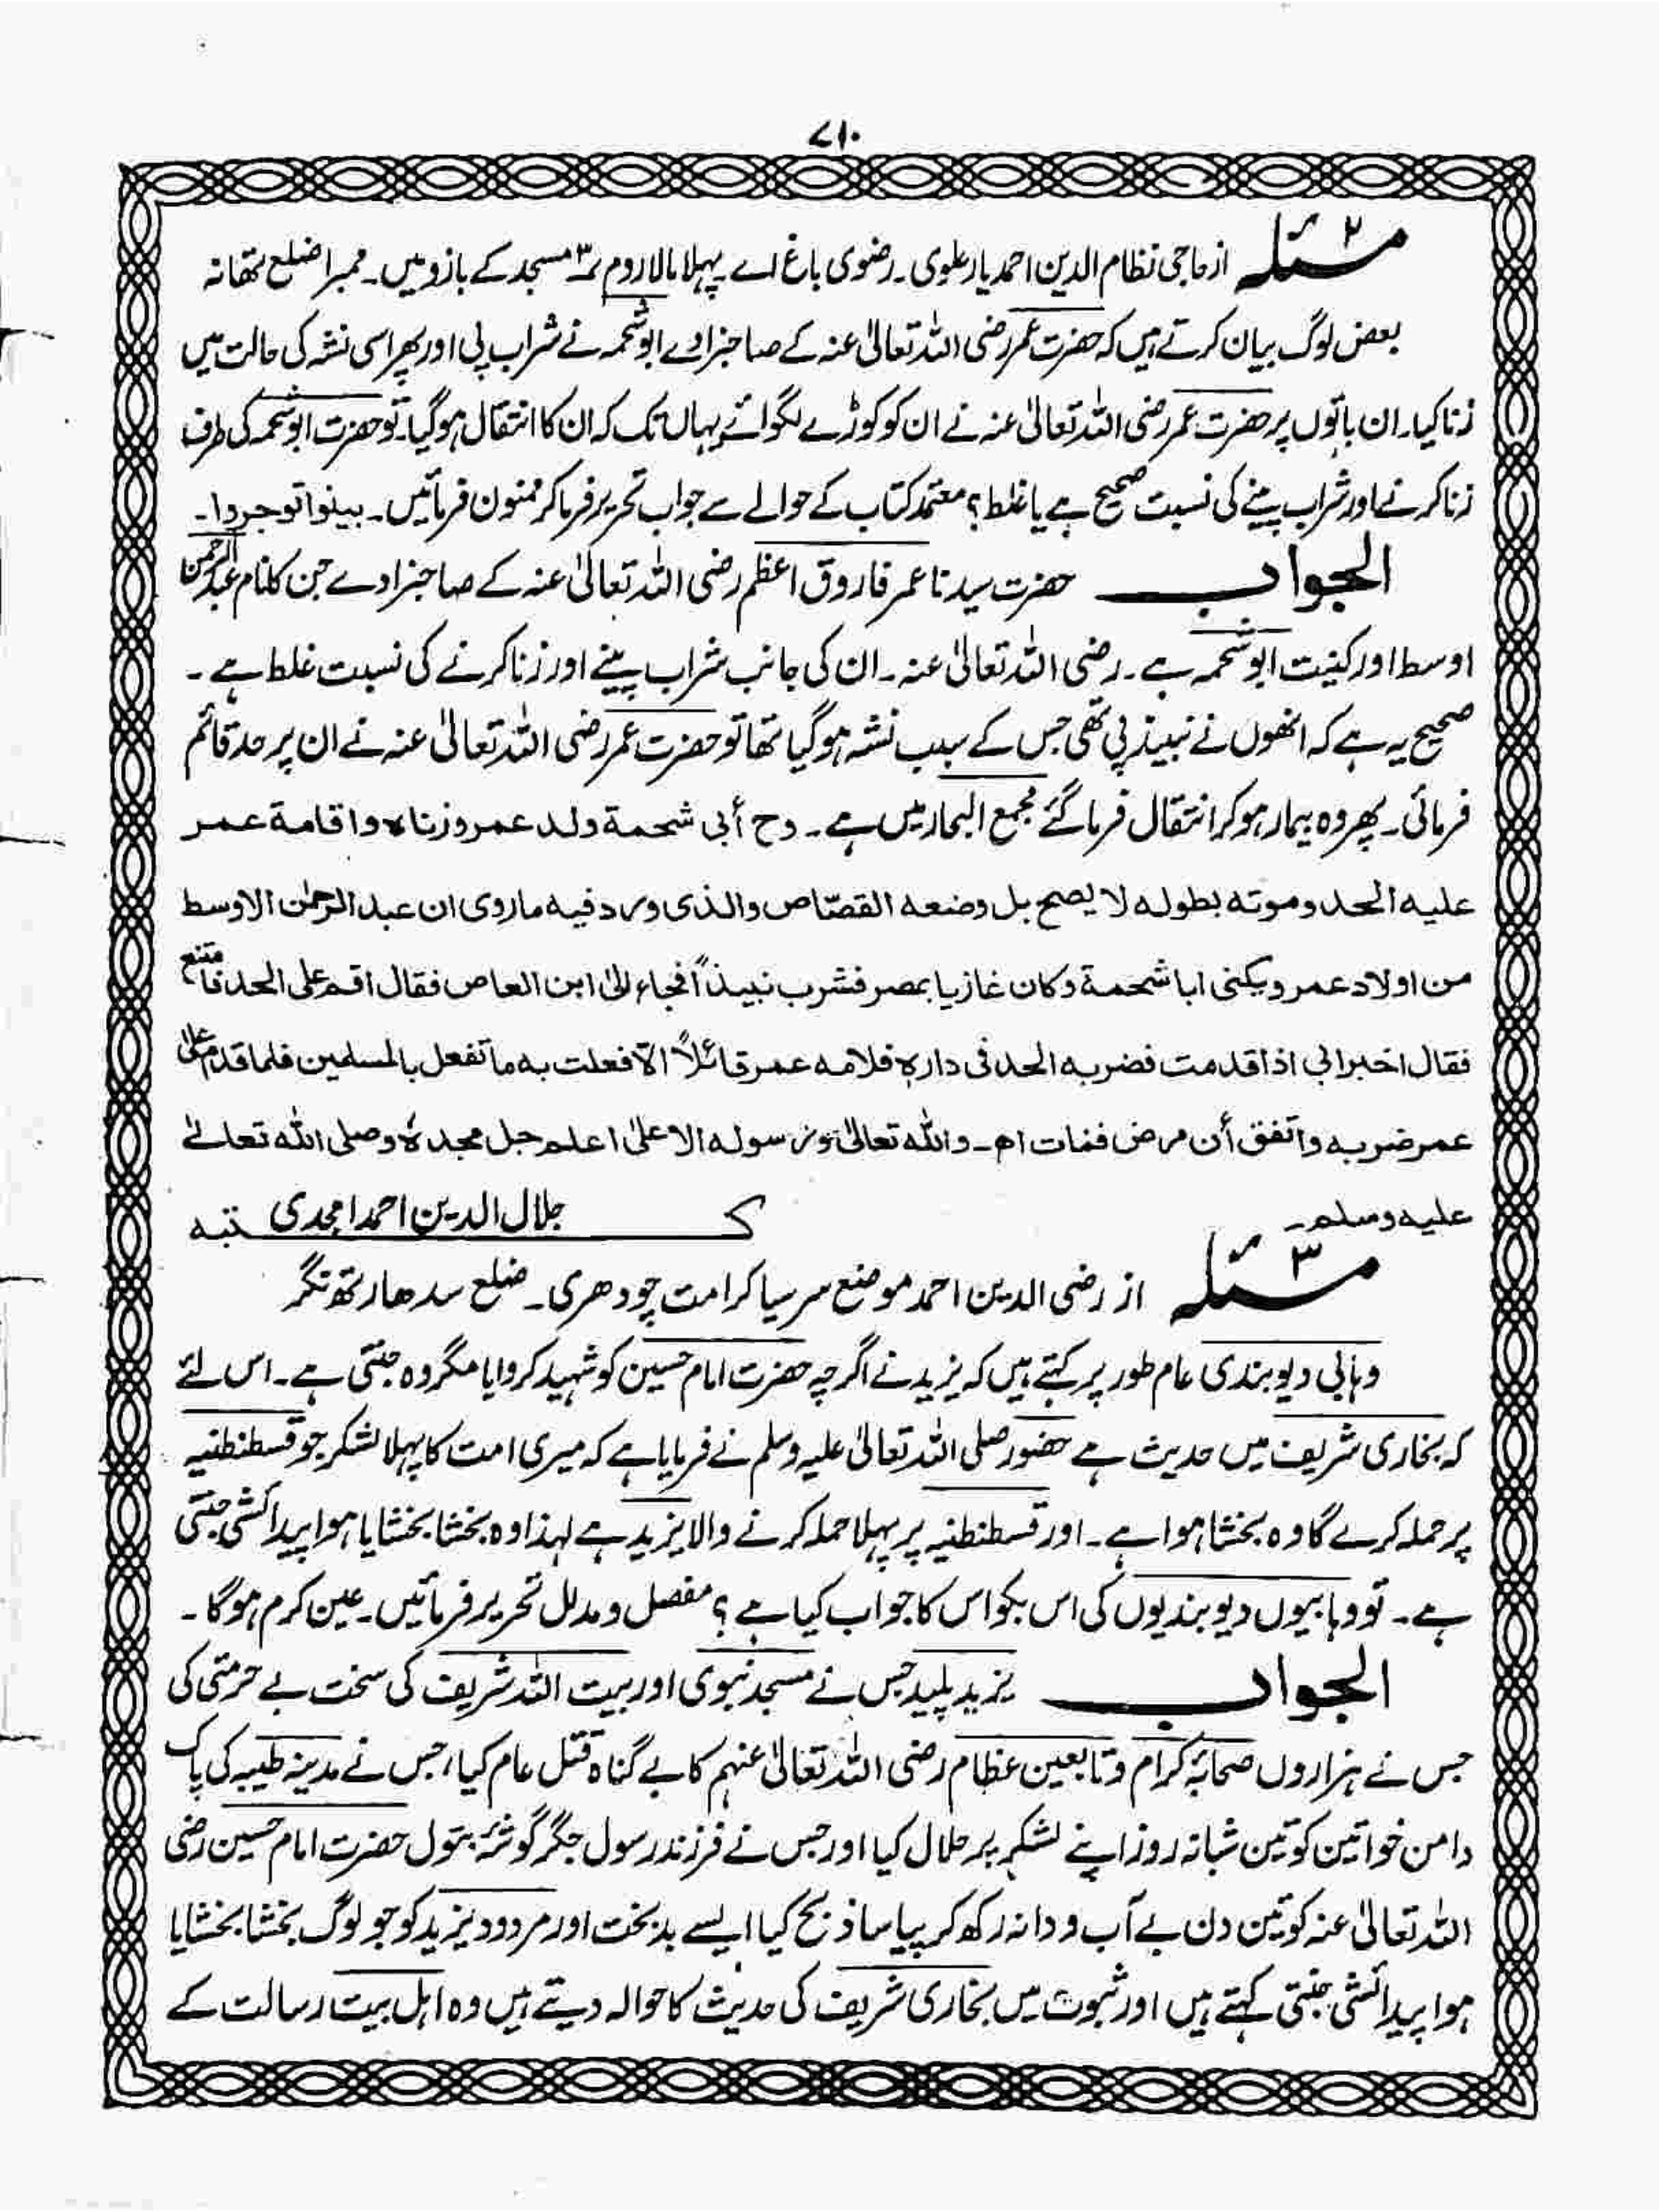 ۷۱۰
مسئلہ ۲ از حاجی نظام الدین احمد یار علوی۔ رضوی باغ اے پہلا مالا روم ۳ مسجد کے بازو میں۔ ممبرا ضلع تھانہ
بعض لوگ بیان کرتے ہیں کہ حضرت عمر رضی اللہ تعالیٰ عنہ کے صاحبزادے ابو شحمہ نے شراب پی اور پھر اسی نشہ کی حالت میں
زنا کیا۔ ان باتوں پر حضرت عمر رضی اللہ تعالیٰ عنہ نے ان کو کوڑے لگوائے یہاں تک کہ ان کا انتقال ہو گیا۔ تو حضرت ابو شحمہ کی طرف
زنا کرنے اور شراب پینے کی نسبت صحیح ہے یا غلط؟ معتمد کتاب کے حوالے سے جواب تحریر فرما کر ممنون فرمائیں۔ بینوا توجروا۔
الجواب حضرت سیدنا عمر فاروق اعظم رضی اللہ تعالیٰ عنہ کے صاحبزادے جن کا نام عبدالرحمن
اوسط اور کنیت ابو شحمہ ہے۔ رضی اللہ تعالیٰ عنہ۔ ان کی جانب شراب پینے اور زنا کرنے کی نسبت غلط ہے۔
صحیح یہ ہے کہ انھوں نے نبیذ پی تھی جس کے سبب نشہ ہو گیا تھا تو حضرت عمر رضی اللہ تعالیٰ عنہ نے ان پر حد قائم
فرمائی۔ پھر وہ بیمار ہو کر انتقال فرما گئے مجمع البحار میں ہے۔ وح أبی شحمة ولد عمر وزناہ واقامة عمر
علیه الحد وموته بطوله لا یصح بل وضعه القصّاص والذی ورد فیه ماروی ان عبد الرحمٰن الاوسط
من اولاد عمر ویکنی ابا شحمة وکان غازیا بمصر فشرب نبیذاً فجاء الیٰ ابن العاص فقال اقم علی الحد فامتنع
فقال اخبر ابی اذا قدمت فضربه الحد فی دارہ فلامه عمر قائلاً الّا فعلت به ما تفعل بالمسلمین فلما قدم علیٰ
عمر ضربه واتفق أن مرض فمات اھ۔ واللہ تعالیٰ ورسوله الاعلیٰ اعلم جل مجدہٗ وصلی اللہ تعالےٰ
علیه وسلم۔
کتبہ جلال الدین احمد امجدی
مسئلہ ۳ از رضی الدین احمد موضع سرسیا کرامت چودھری۔ ضلع سدھارتھ نگر
وہابی دیوبندی عام طور پر کہتے ہیں کہ یزید نے اگرچہ حضرت امام حسین کو شہید کروایا مگر وہ جنتی ہے۔ اس لئے
کہ بخاری شریف میں حدیث ہے حضور صلی اللہ تعالیٰ علیہ وسلم نے فرمایا ہے کہ میری امت کا پہلا لشکر جو قسطنطنیہ
پر حملہ کرے گا وہ بخشا ہوا ہے۔ اور قسطنطنیہ پر پہلا حملہ کرنے والا یزید ہے لہذا وہ بخشا بخشایا ہوا پیدائشی جنتی
ہے۔ تو وہابیوں دیوبندیوں کی اس بکواس کا جواب کیا ہے؟ مفصل و مدلل تحریر فرمائیں۔ عین کرم ہوگا۔
الجواب یزید پلید جس نے مسجد نبوی اور بیت اللہ شریف کی سخت بے حرمتی کی
جس نے ہزاروں صحابۂ کرام و تابعین عظام رضی اللہ تعالیٰ عنہم کا بے گناہ قتل عام کیا، جس نے مدینہ طیبہ کی پاک
دامن خواتین کو تین شبانہ روز اپنے لشکر پر حلال کیا اور جس نے فرزند رسول جگر گوشۂ بتول حضرت امام حسین رضی
اللہ تعالیٰ عنہ کو تین دن بے آب و دانہ رکھ کر پیاسا ذبح کیا ایسے بدبخت اور مردود یزید کو جو لوگ بخشا بخشایا
ہوا پیدائشی جنتی کہتے ہیں اور ثبوت میں بخاری شریف کی حدیث کا حوالہ دیتے ہیں وہ اہل بیت رسالت کے